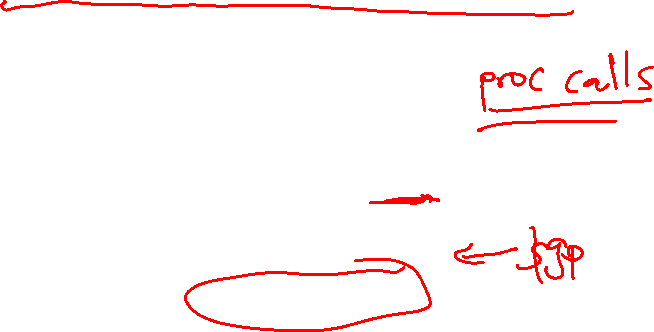 proc calls
← $gp